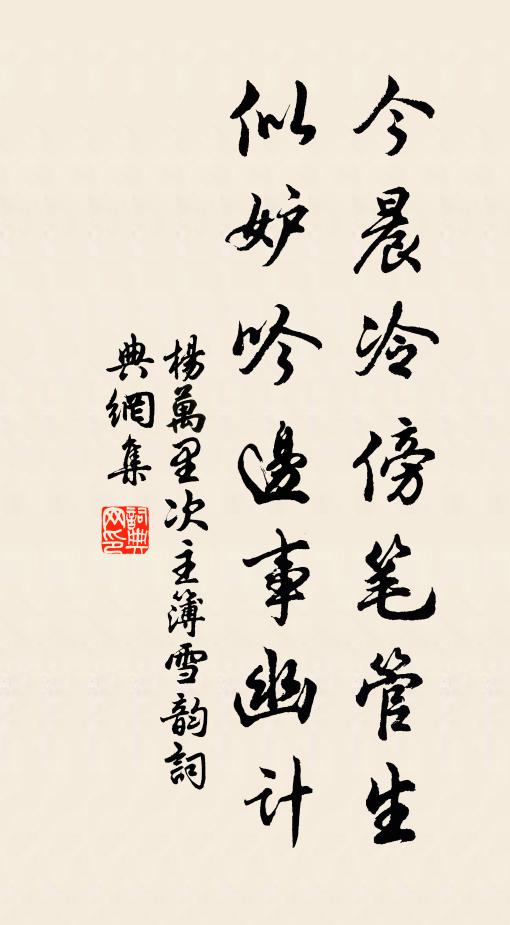 今晨冷傍笔管生
似妒吟邊事幽计
楊萬里次主簿雪韵詞
典網集
詞典网印